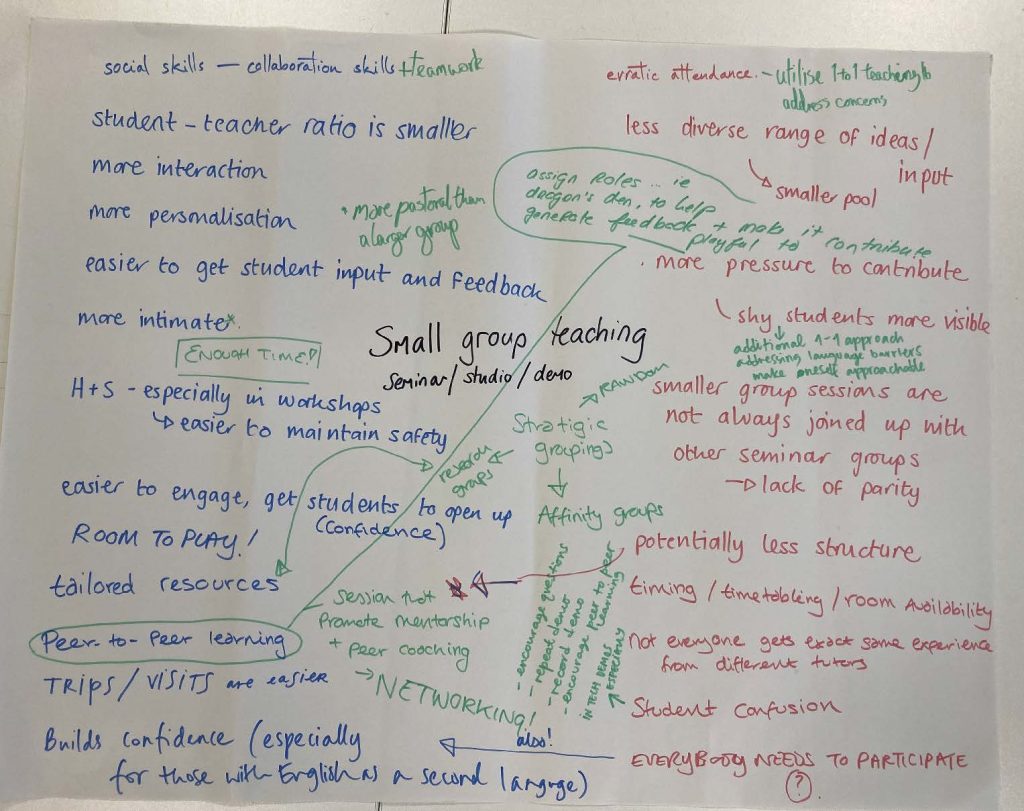 social skills – collaboration skills + teamwork
student-teacher ratio is smaller
more interaction
more personalisation
* more pastoral than
a larger group
easier to get student input and feedback
more intimate*.
ENOUGH TIME!
H+S - especially in workshops
↳ easier to maintain safety
easier to engage, get students to open up
(confidence)
ROOM TO PLAY!
tailored resources
Peer-to-Peer learning
TRIPS / VISITS are easier
Builds confidence (especially
for those with English as a second languge)
Small group teaching
seminar/studio/demo
Stratigic
groupings
→ RANDOM
research
groups
Affinity groups
session that
promote mentorship
+ peer coaching
→ NETWORKING!
- encourage questions
- repeat demo
- record demo
- encourage peer to peer
learning
IN TECH DEMOS
↑ ESPECIALLY
also!
erratic attendance. - utilise 1 to 1 teaching to
address concerns
less diverse range of ideas/
input
↘ smaller pool
assign roles... ie
dragon's den, to help
generate feedback + make it
playful to contribute
. more pressure to contribute
shy students more visible
↓
additional 1-1 approach
addressing language barriers
make oneself approachable
smaller group sessions are
not always joined up with
other seminar groups
→ lack of parity
potentially less structure
timing / timetabling / room availability
Not everyone gets exact same experience
from different tutors
Student confusion
EVERYBODY NEEDS TO PARTICIPATE
?